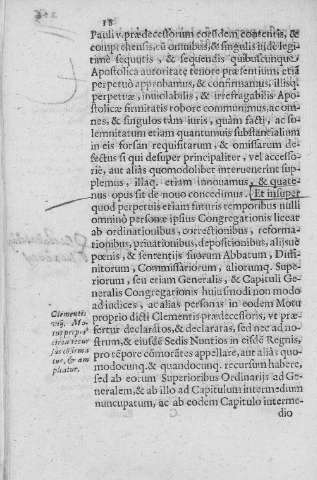 18
Pauli v. prædecessorum eorundem contentis, &
comprehensis, cũ omnibus, & singulis inde legi
time sequutis, & sequendis quibuscunque
Apostolica autoritate tenore præsentium, etiã
perpetuò approbamus, & confirmamus, illisq.
perpetuæ, inuiolabilis, & irrefragabilis Apo-
stolicæ firmitatis robore communimus, ac om-
nes, & singulos tàm iuris, quàm facti, ac so-
lemnitatum etiam quantumuis substantialium
in eis forsan requisitarum, & omissarum de-
fectus si qui desuper principaliter, vel accesso-
riè, aut alias quomodolibet interuenerint sup-
plemus, illaq. etiam innouamus, & quate-
nus opus sit de nouo concedimus. Et insuper
quod perpetuis etiam futuris temporibus nulli
omninò personæ ipsius Congregationis liceat
ab ordinationibus, correctionibus, reforma-
tionibus, priuationibus, depositionibus, alijsue
pœnis, & sententijs suorum Abbatum, Diffi-
nitorum, Commissariorum, aliorumq. Superi-
orum, seu etiam Generalis, & Capituli Ge-
neralis Congregationis huiusmodi non modo
ad iudices, ac alias personas in eodem Motu
proprio dicti Clementis prædecessoris, vt præ-
fertur declaratos, & declaratas, sed nec ad no-
strum, & eiusdẽ Sedis Nuntios in eisdẽ Regnis,
pro tẽpore cõmorãtes appellare, aut aliàs quo-
modocunq. & quandocunq. recursum habere,
sed ab eorum Superioribus Ordinarijs ad Ge-
neralem, & ab illo ad Capitulum intermedium
nuncupatum, ac ab eodem Capitulo interme-
dio
Clementis
viij. Mo-
tus propri9
circa recur
sus cõfirma
tur, & am
pliatur.